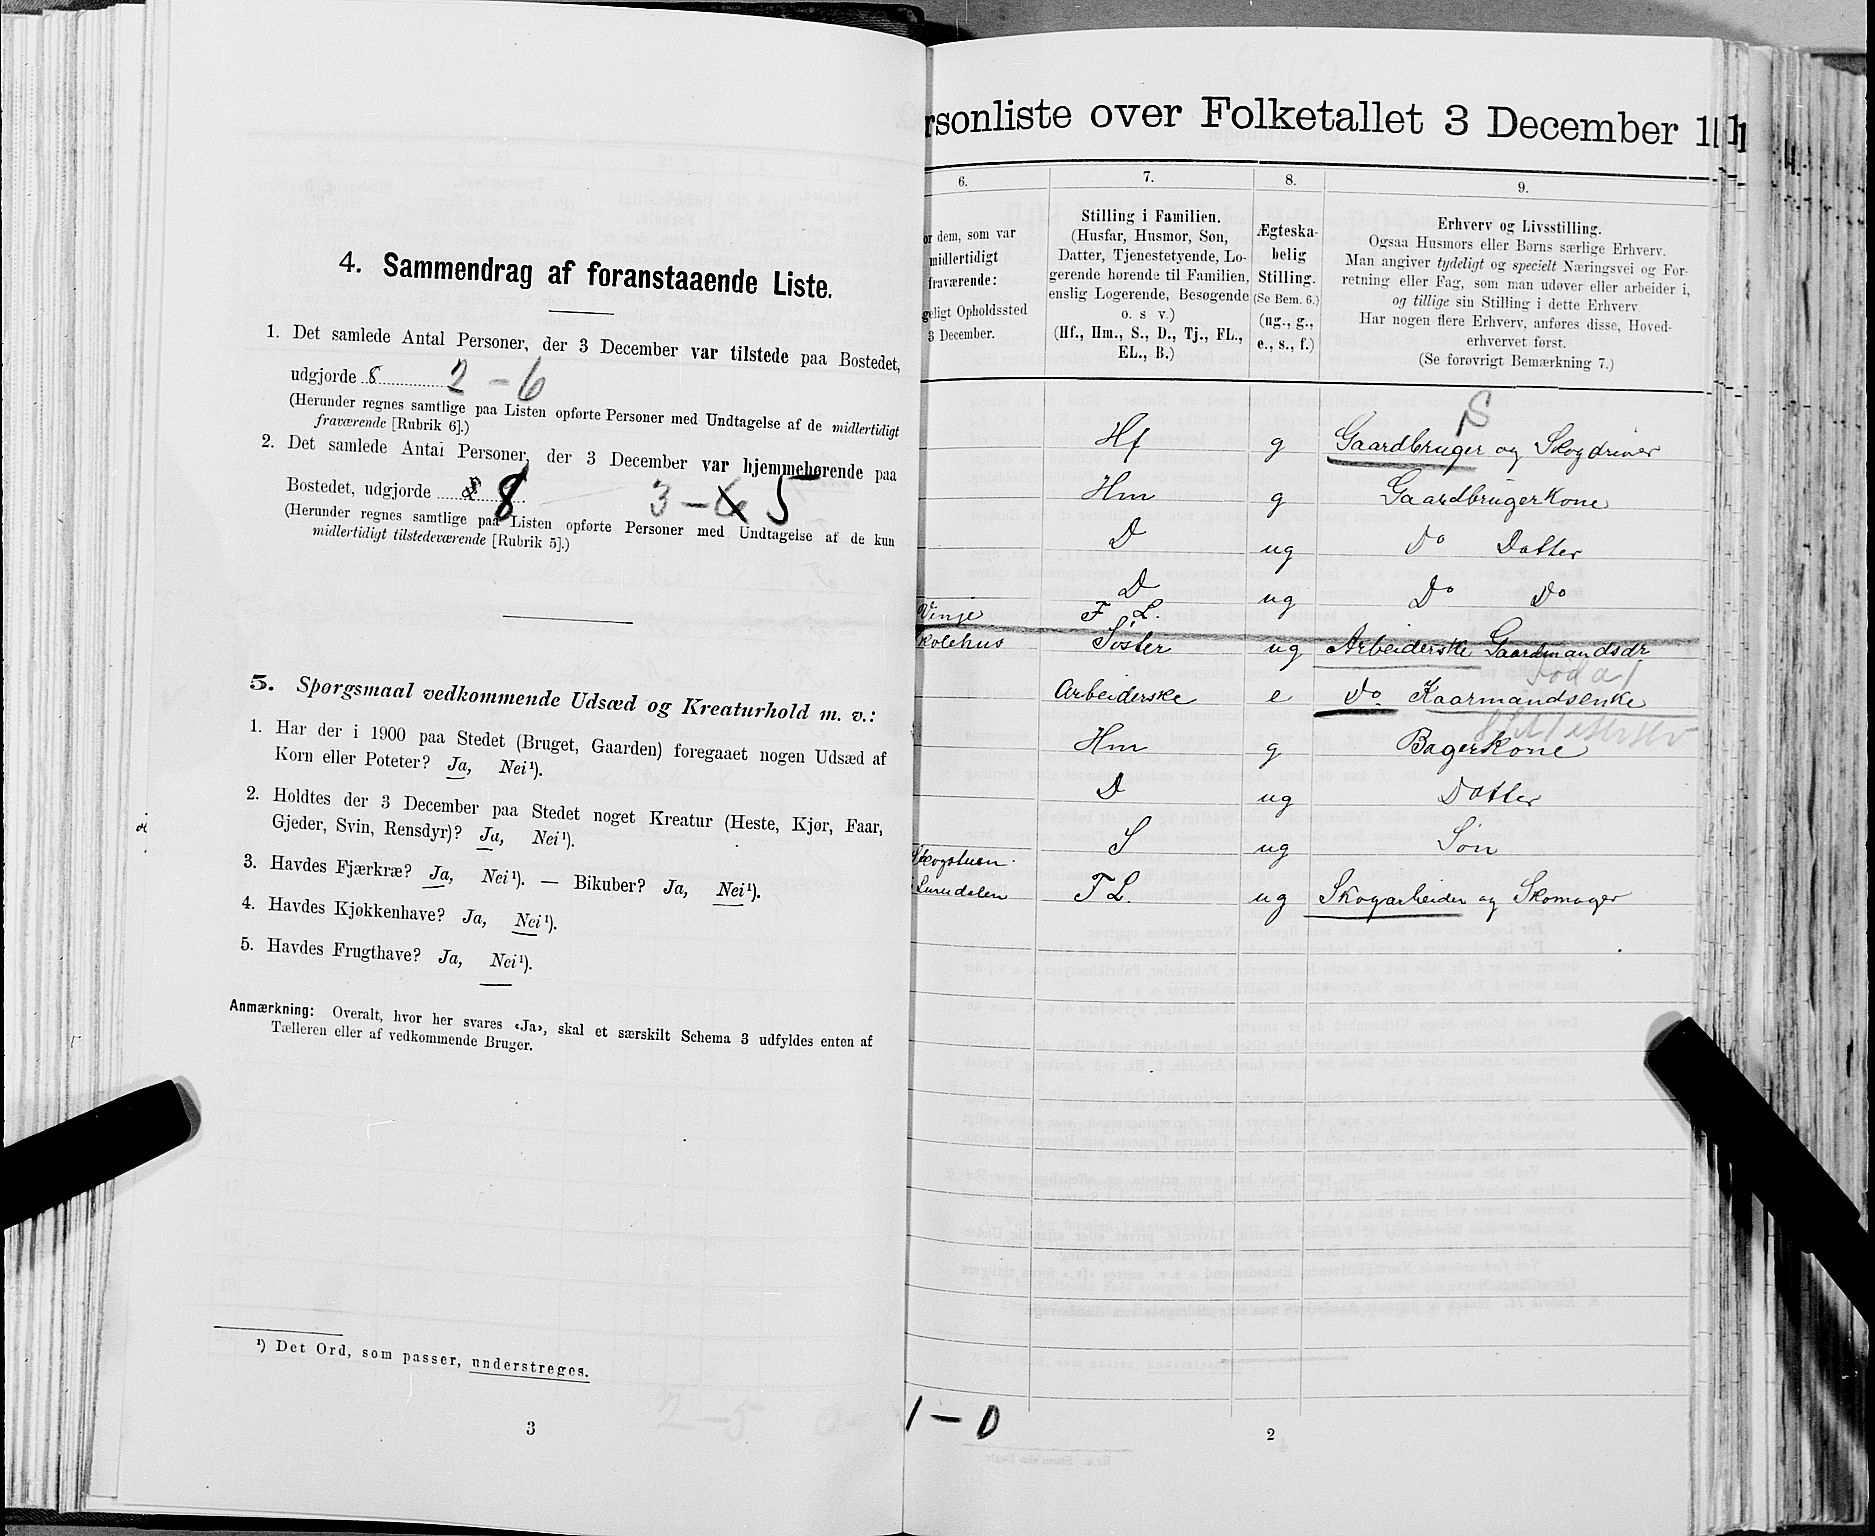 4. Sammendrag af foranstaaende Liste.
1. Det samlede Antal Personer, der 3 December var tilstede paa Bostedet,
udgjorde 8 2 – 6
(Herunder regnes samtlige paa Listen opførte Personer med Undtagelse af de midlertidigt
fraværende [Rubrik 6].)
2. Det samlede Antal Personer, der 3 December var hjemmehørende paa
Bostedet, udgjorde 8 3 – 6 5
(Herunder regnes samtlige paa Listen opførte Personer med Undtagelse af de kun
midlertidigt tilstedeværende [Rubrik 5].)
5. Spørgsmaal vedkommende Udsæd og Kreaturhold m. v.:
1. Har der i 1900 paa Stedet (Bruget, Gaarden) foregaaet nogen Udsæd af
Korn eller Poteter? Ja, Nei¹).
2. Holdtes der 3 December paa Stedet noget Kreatur (Heste, Kjør, Faar,
Gjeder, Svin, Rensdyr)? Ja, Nei¹).
3. Havdes Fjærkræ? Ja, Nei¹). — Bikuber? Ja, Nei¹).
4. Havdes Kjøkkenhave? Ja, Nei¹).
5. Havdes Frugthave? Ja, Nei¹).
Anmærkning: Overalt, hvor her svares «Ja», skal et særskilt Schema 3 udfyldes enten af
Tælleren eller af vedkommende Bruger.
¹) Det Ord, som passer, understreges.
2 – 5
3
rsonliste over Folketallet 3 December 1
6.
7.
8.
9.
or dem, som var
midlertidigt
fraværende:
geligt Opholdssted
3 December.
Stilling i Familien.
(Husfar, Husmor, Søn,
Datter, Tjenestetyende, Lo-
gerende hørende til Familien,
enslig Logerende, Besøgende
o. s v.)
(Hf., Hm., S., D., Tj., FL.,
EL., B.)
Ægteska-
belig
Stilling.
(Se Bem. 6.)
(ug., g.,
e., s., f.)
Erhverv og Livsstilling.
Ogsaa Husmors eller Børns særlige Erhverv.
Man angiver tydeligt og specielt Næringsvei og For-
retning eller Fag, som man udøver eller arbeider i,
og tillige sin Stilling i dette Erhverv.
Har nogen flere Erhverv, anføres disse, Hoved-
erhvervet først.
(Se forøvrigt Bemærkning 7.)
S
Hf g Gaardbruger og Skogdriver
Hm g Gaardbrugerkone
D ug Do Datter
D ug Do Do
Vinje F. L.
kolehus Søster ug Arbeiderske Gaardmandsdr
Arbeiderske e Do. Kaarmandsenke
Hm g Bagerkone
D ug Datter
S ug Søn
Skogstuen
Lurudalen F L. ug Skogarbeider og Skomager
1 – 0
2